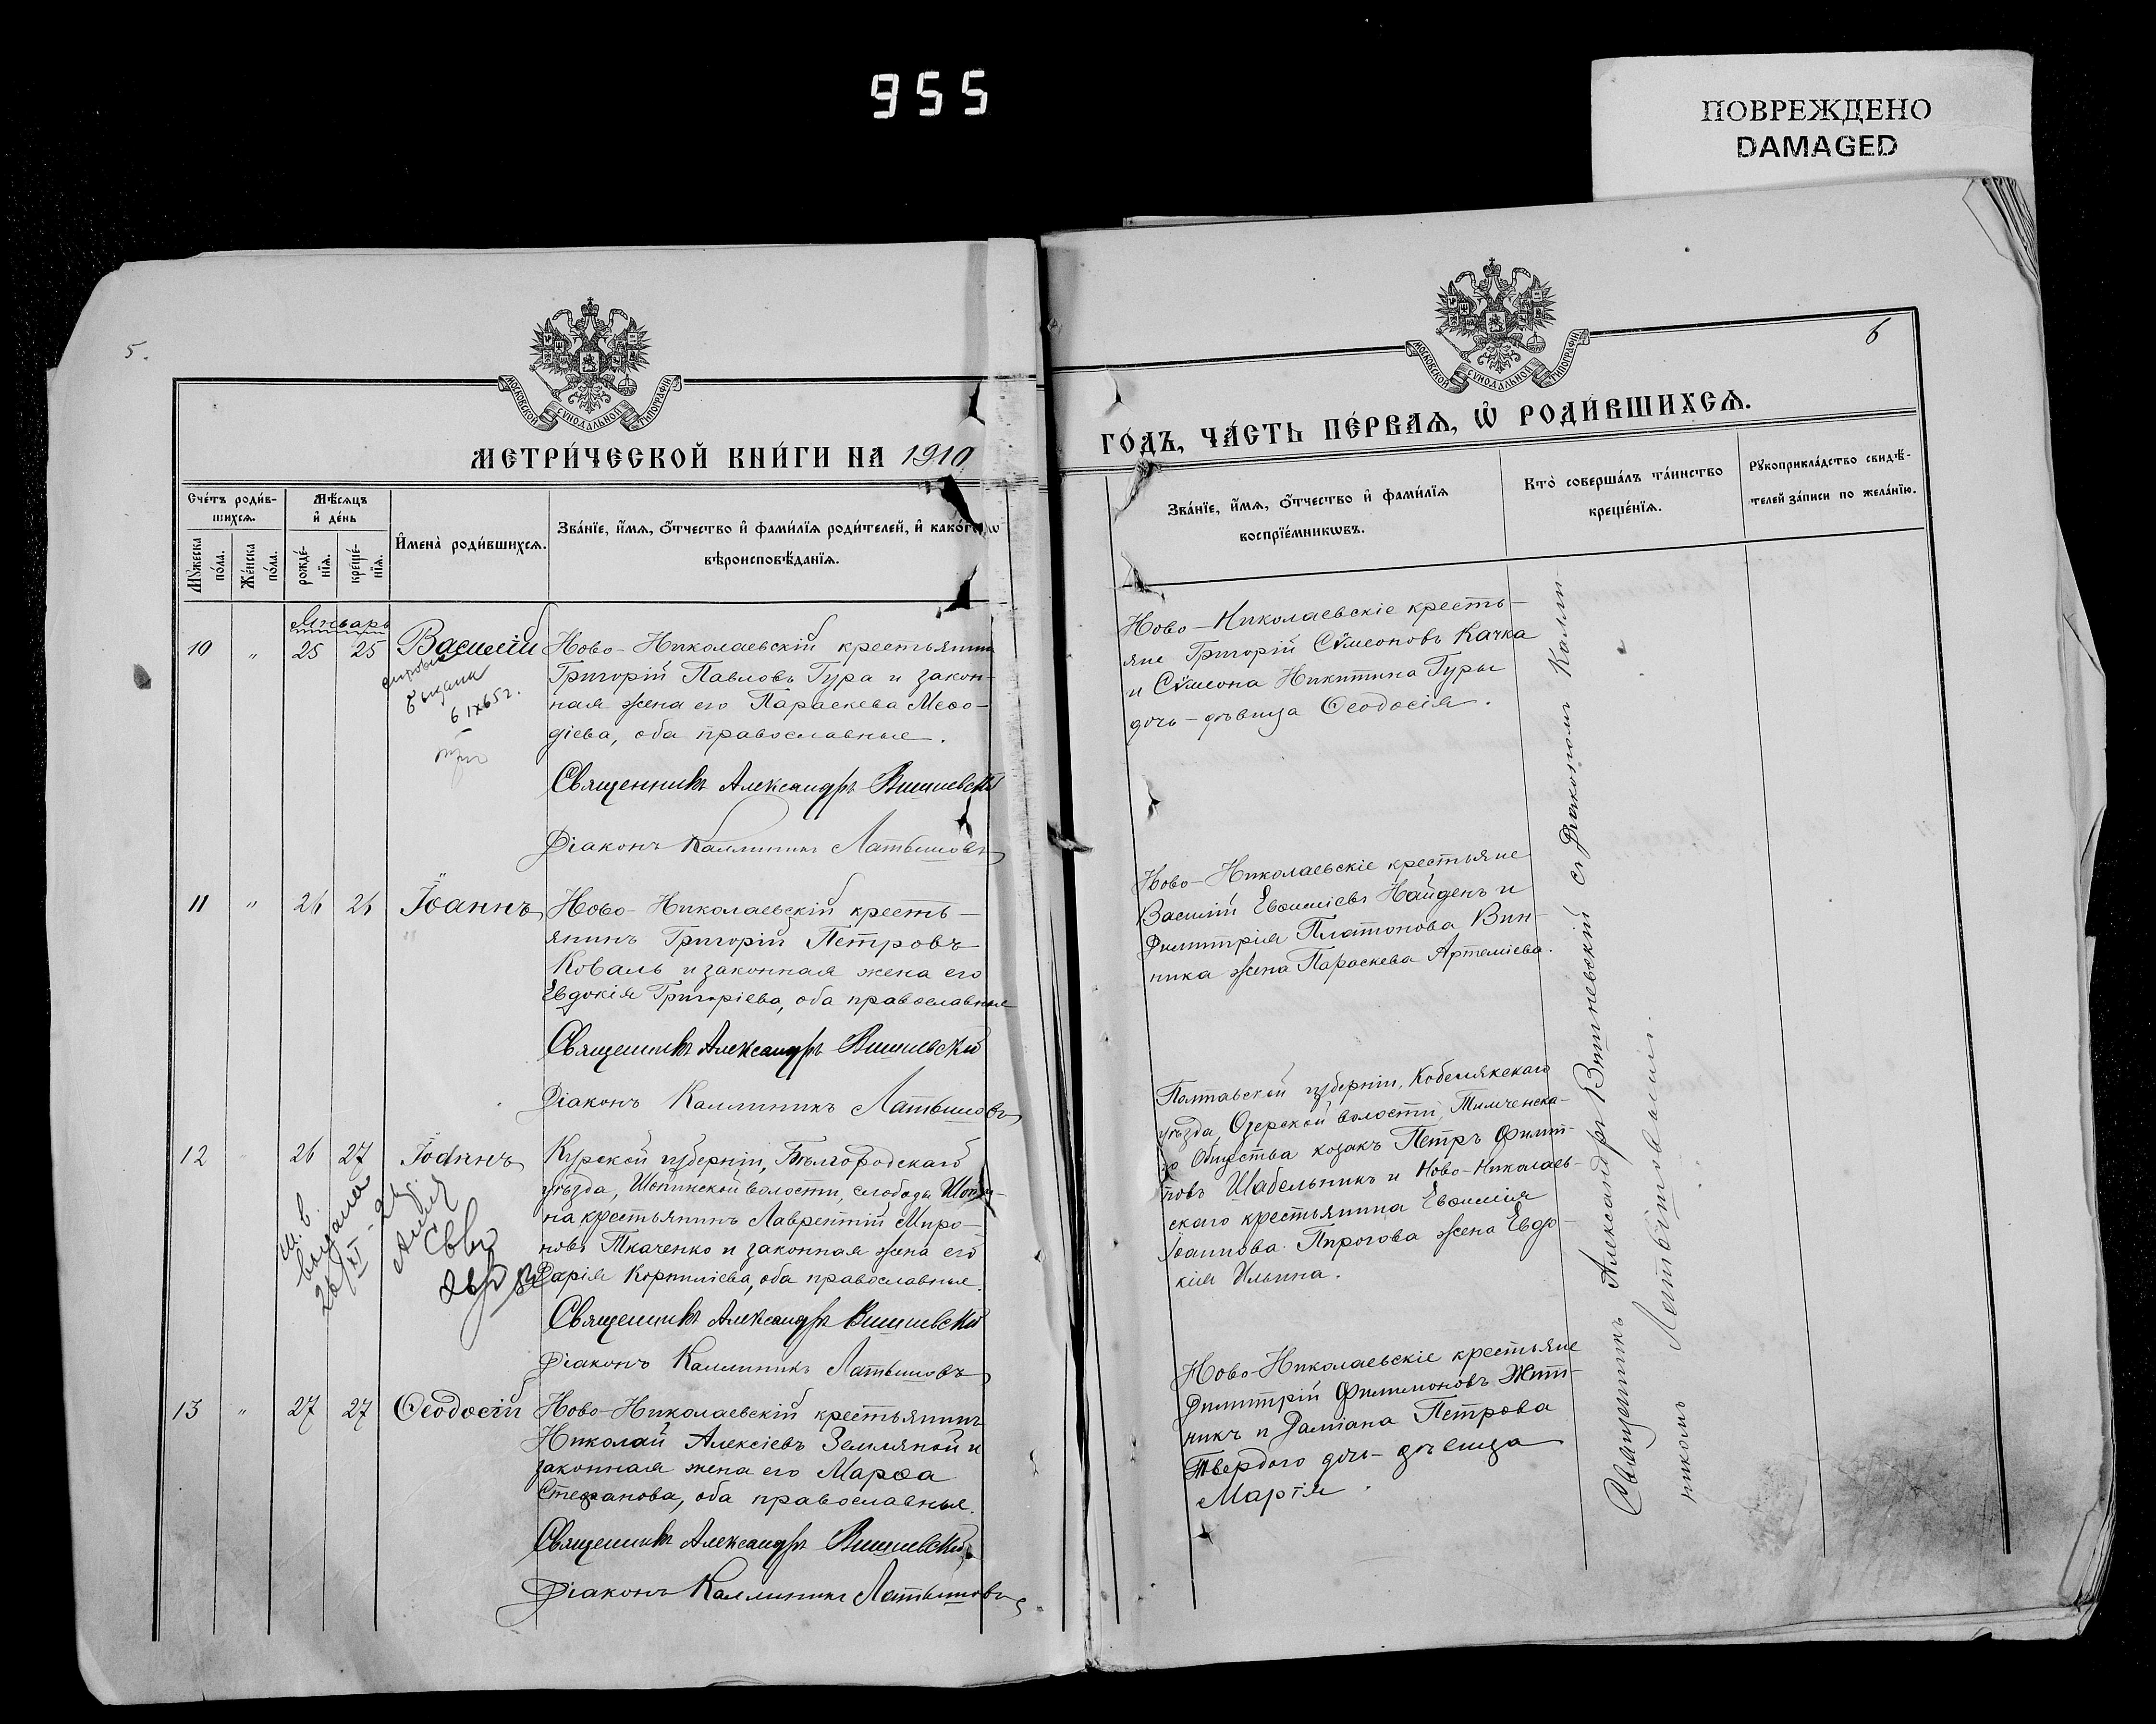 955
ПОВРЕЖДЕНО
DAMAGED
5.
МОСКОВСКОЙ СѴНОДАЛЬНОЙ ТИПОГРАФІИ
МЕТРИ́ЧЕСКОЙ КНИ́ГИ НА 1910
Сче́тъ роди́в-
шихсѧ.
Мѣ́сѧцъ
и҆ де́нь
Мꙋ́жеска
по́ла.
Же́нска
по́ла.
рожде́-
нїѧ.
креще́-
нїѧ.
И҆мена̀ роди́вшихсѧ.
Зва́нїе, и҆́мѧ, ѻ҆́тчество и҆ фами́лїѧ роди́телей, и҆ како́гѡ
вѣроисповѣ́данїѧ.
Январь
10 " 25 25 Василій
выдана
6 IX 65 г.
Ново-Николаевскій крестьянинъ
Григорій Павловъ Гура и закон-
ная жена его Параскева Меѳо-
діева, оба православные.
Священникъ Александръ Вишневскій
Діаконъ Каллиникъ Латышовъ
11 " 26 26 Іоаннъ
Ново-Николаевскій кресть-
янинъ Григорій Петровъ
Коваль и законная жена его
Евдокія Григоріева, оба православные
Священникъ Александръ Вишневскій
Діаконъ Каллиникъ Латышовъ
12 26 27 Іоаннъ
Курской губерніи, Бѣлгородскаго
уѣзда, Шопинской волости, слободы Шопи-
на крестьянинъ Лаврентій Миро-
новъ Ткаченко и законная жена его
Дарія Корниліева, оба православные.
Священникъ Александръ Вишневскій
Діаконъ Каллиникъ Латышовъ
13 " 27 27 Ѳеодосій
Ново-Николаевскій крестьянинъ
Николай Алексіевъ Земляной и
законная жена его Марѳа
Стефанова, оба православные.
Священникъ Александръ Вишневскій
Діаконъ Каллиникъ Латышовъ
6
МОСКОВСКОЙ СѴНОДАЛЬНОЙ ТИПОГРАФІИ
ГО́ДЪ, ЧА́СТЬ ПЕ́РВАѦ, Ѡ҆ РОДИ́ВШИХСѦ.
Зва́нїе, и҆́мѧ, ѻ҆́тчество и҆ фами́лїѧ
воспрїе́мникѡвъ.
Кто̀ соверша́лъ та́инство
креще́нїѧ.
Рꙋкоприкла́дство свидѣ́-
телей за́писи по жела́нїю.
Ново-Николаевскіе кресть-
яне Григорій Сѵмеоновъ Качка
и Сѵмеона Никитина Гуры
дочь-дѣвица Ѳеодосія.
Ново-Николаевскіе крестьяне
Василій Евѳиміевъ Найденъ и
Димитрія Платонова Вин-
ника жена Параскева Артеміева.
Полтавской губерніи, Кобелякскаго
уѣзда, Озерской волости, Тимченска-
го Общества козакъ Петръ Филип-
повъ Шабельникъ и Ново-Николаев-
скаго крестьянина Евѳимія
Іоаннова Пирогова жена Евдо-
кія Ильина.
Ново-Николаевскіе крестьяне
Димитрій Филимоновъ Жит-
никъ и Даміана Петрова
Твердого дочь-дѣвица
Марія.
Священникъ Александръ Вишневскій съ Діакономъ Калли-
никомъ Латышовымъ.